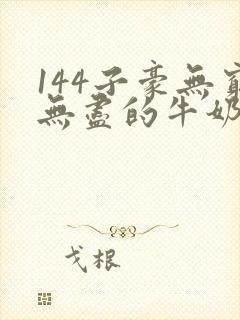 144子豪無窮
無盡的牛奶
戈根